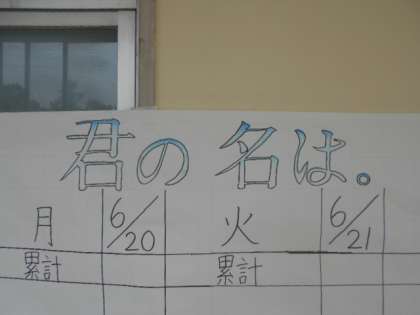 君の名は。
月 6/20 火 6/21
累計 累計